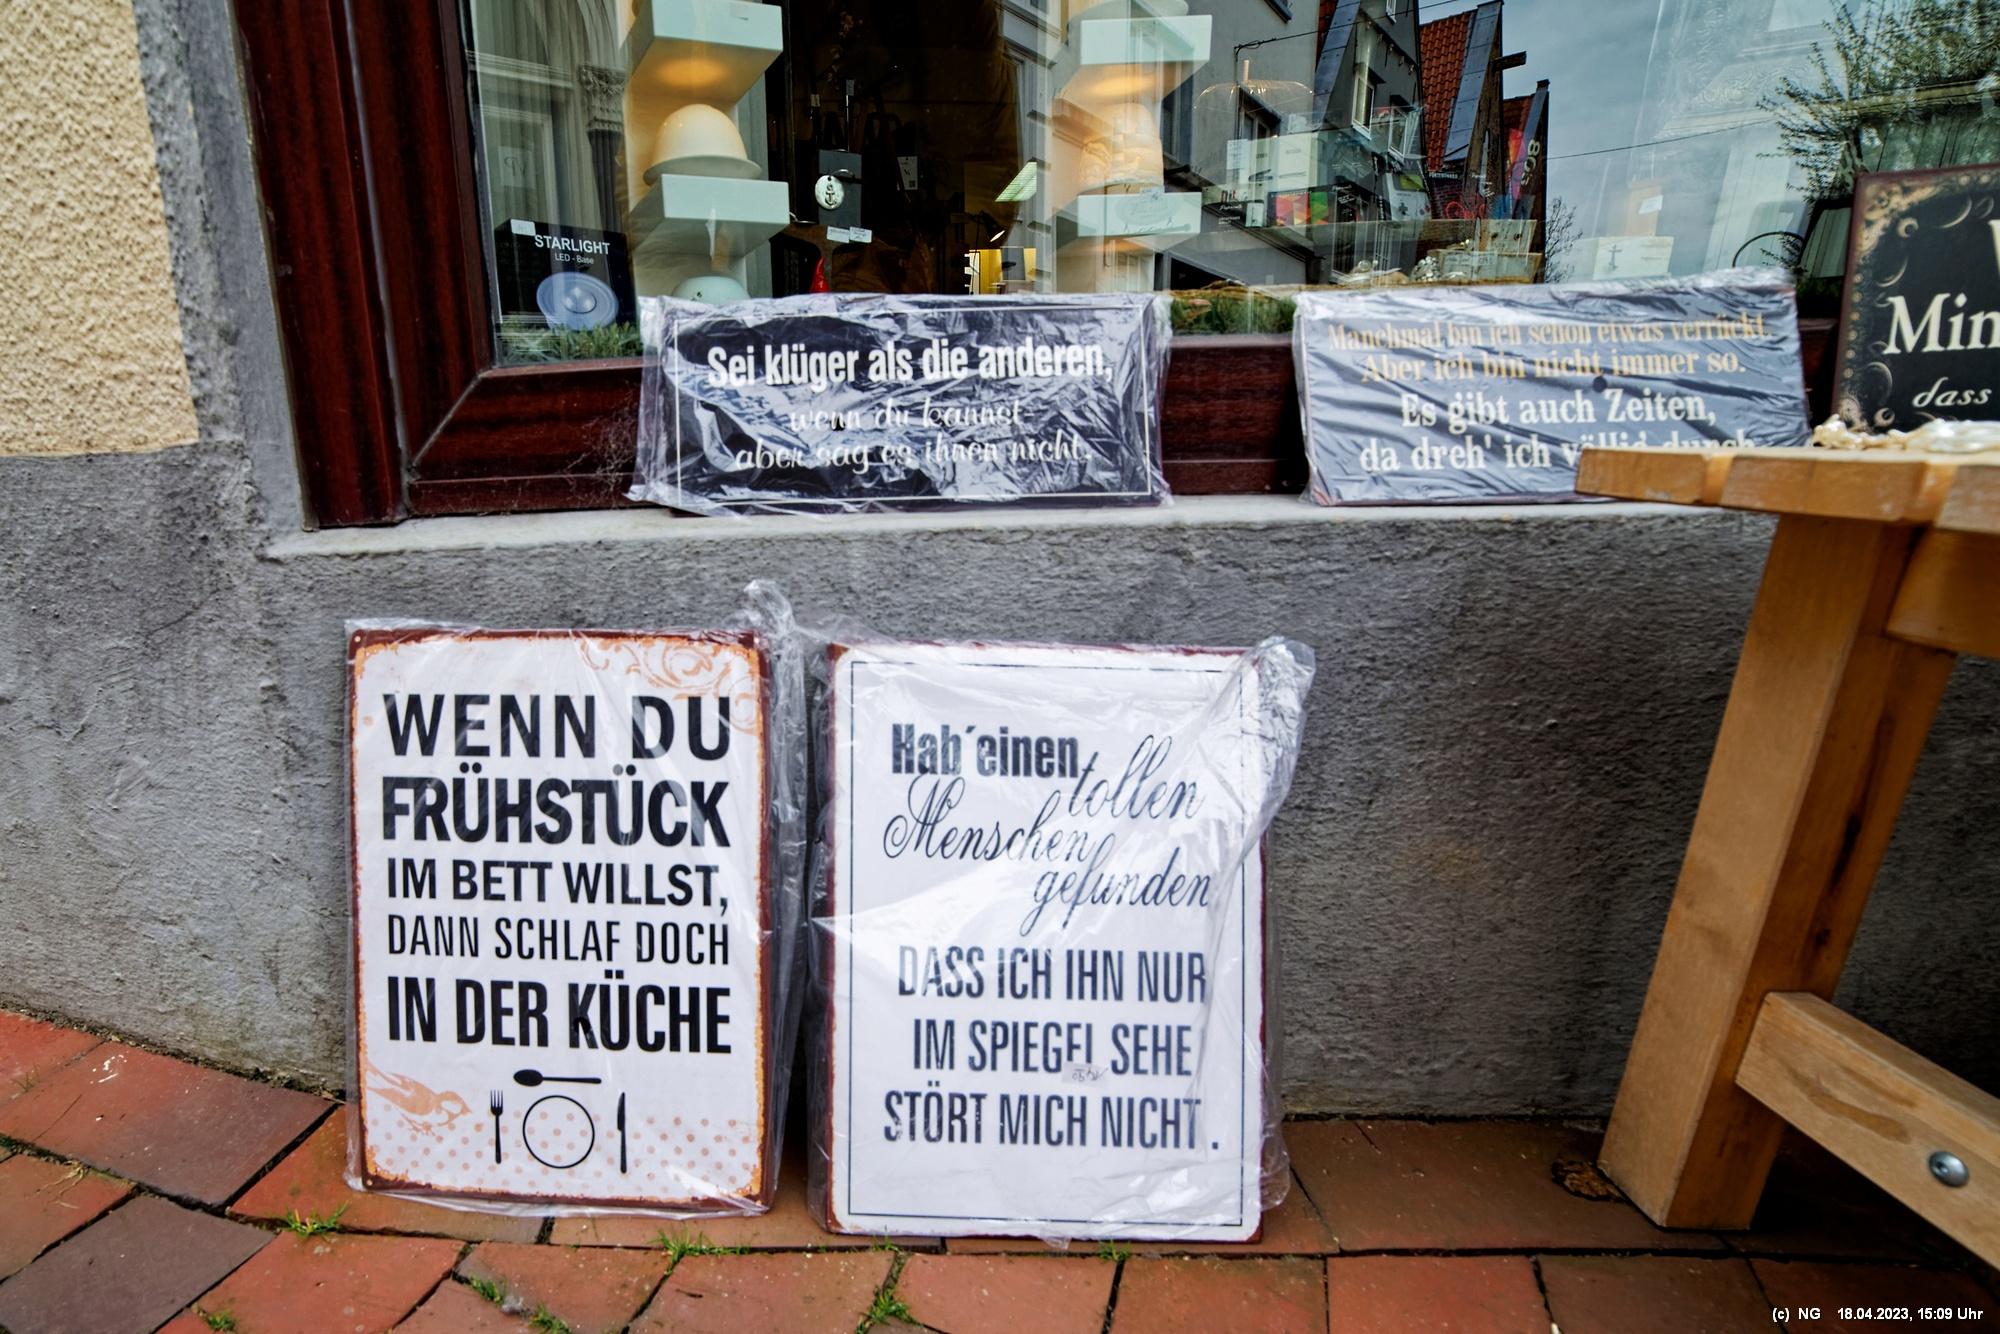 STARLIGHT
LED - Base
Sei klüger als die anderen,
wenn du kannst
aber sag es ihnen nicht.
Manchmal bin ich schon etwas verrückt.
Aber ich bin nicht immer so.
Es gibt auch Zeiten,
da dreh' ich völlig durch
Min
dass
WENN DU
FRÜHSTÜCK
IM BETT WILLST,
DANN SCHLAF DOCH
IN DER KÜCHE
Hab´einen
tollen
Menschen
gefunden
DASS ICH IHN NUR
IM SPIEGEL SEHE
STÖRT MICH NICHT.
(c) NG 18.04.2023, 15:09 Uhr